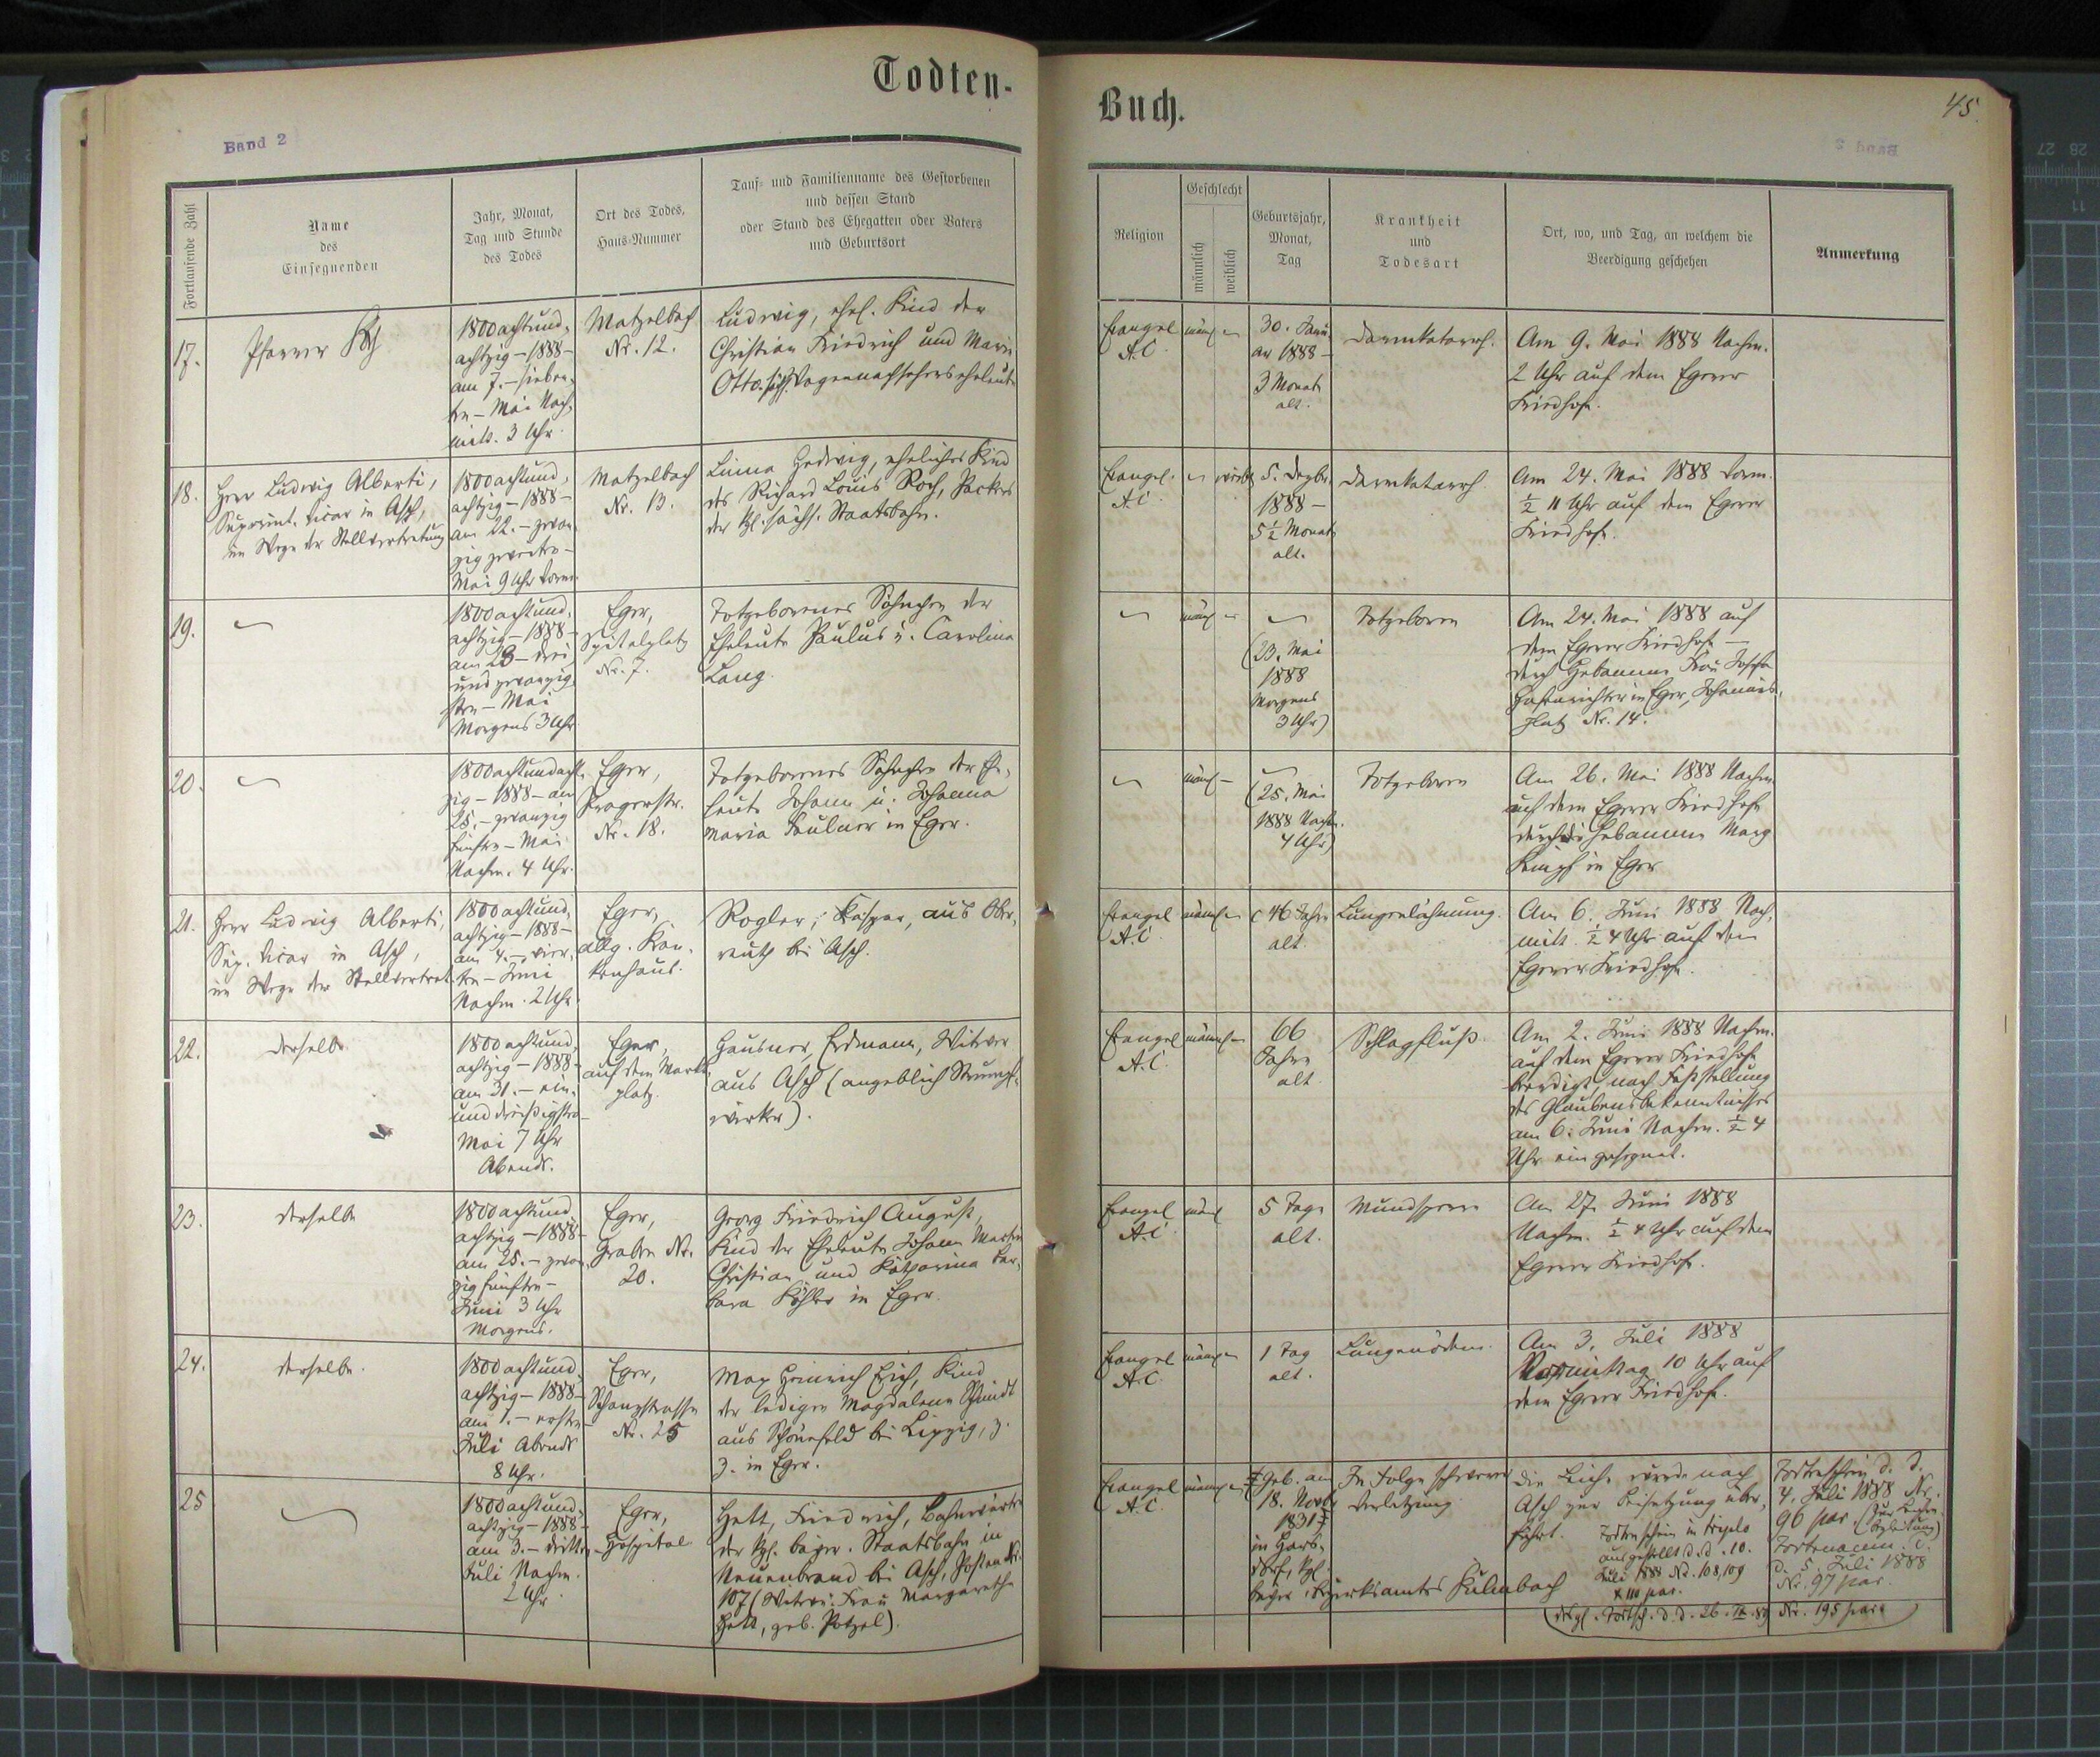 Todten-
Buch.
45.
Band 2
Fortlaufende Zahl
Name
des
Einsegnenden
Jahr, Monat,
Tag und Stunde
des Todes
Ort des Todes,
Haus-Nummer
Tauf- und Familienname des Gestorbenen
und dessen Stand
oder Stand des Ehegatten oder Vaters
und Geburtsort
Religion
Geschlecht
männlich
weiblich
Geburtsjahr,
Monat,
Tag
Krankheit
und
Todesart
Ort, wo, und Tag, an welchem die
Beerdigung geschehen
Anmerkung
17.
Pfarrer
1800 achtund-
achtzig - 1888 -
am 7. - sieben-
ten - Mai Nach-
mitt. 3 Uhr.
Matzelbach
Nr. 12.
Ludwig, ehel. Kind der
Christian Friedrich und Marie
Otto, sächs. Wagennachsehers eheleute
Evangel
A.C.
männ
30. Janu
ar 1888 -
3 Monate
alt.
Darmkatarrh.
Am 9. Mai 1888 Nachm.
2 Uhr auf dem Egerer
Friedhofe.
18.
Herr Ludwig Alberti,
Superint. Vicar in Asch,
im Wege der Stellvertretung
1800 achtund-
achtzig - 1888 -
am 22. - zwan-
zig zweiten -
Mai 9 Uhr Vorm.
Matzelbach
Nr. 13.
Linna Hedwig, eheliches Kind
des Richard Louis Roch, Packers
der kgl. sächs. Staatsbahn.
Evangel.
A.C.
weibl
5. Dezbr.
1888 -
5 ½ Monate
alt.
Darmkatarrh.
Am 24. Mai 1888 Vorm.
½ 11 Uhr auf dem Egerer
Friedhofe.
19.
1800 achtund-
achtzig - 1888 -
am 23 - drei
und zwanzig-
sten - Mai
Morgens 3 Uhr
Eger,
Spitalplatz
Nr. 7.
Totgeborenes Söhnchen der
Eheleute Paulus u. Carolina
Lang.
männ
(23. Mai
1888
Morgens
3 Uhr)
Totgeboren
Am 24. Mai 1888 auf
dem Egerer Friedhofe -
durch Hebamme Frau Josefa
in Eger, Johannis-
platz Nr. 14.
20.
1800 achtundacht-
zig - 1888 - am
25. - zwanzig
fünften - Mai
Nachm. 4 Uhr.
Eger,
Pragerstr.
Nr. 18.
Totgeborenes Söhnchen der Ehe-
leute Johann u. Johanna
Maria Faulner in Eger.
männ
(25. Mai
1888 Nachm.
4 Uhr)
Totgeboren
Am 26. Mai 1888 Nachm
auf dem Egerer Friedhofe
durch die Hebamme Marg
in Eger
21.
Herr Ludwig Alberti,
Sup. Vicar in Asch,
im Wege der Stellvertret.
1800 achtund-
achtzig - 1888 -
am 4. - vier-
ten - Juni
Nachm. 2 Uhr.
Eger,
allg. Kran-
kenhaus.
Rogler, Kaspar, aus Ober-
reuth bei Asch.
Evangel
A.C.
männ
46 Jahre
alt.
Lungenlähmung.
Am 6. Juni 1888 Nach-
mitt. ½ 4 Uhr auf dem
Egerer Friedhofe.
22.
derselbe
1800 achtund-
achtzig - 1888 -
am 31. - ein-
und dreißigsten -
Mai 7 Uhr
Abends.
Eger,
auf dem Markt-
platz.
Hausner, Erdmann, Witwer
aus Asch (angeblich Strumpf-
wirker).
Evangel
A.C.
männ
66
Jahre
alt
Schlagfluß.
Am 2. Juni 1888 Nachm.
auf dem Egerer Friedhofe
beerdigt, nach Feststellung
des Glaubensbekenntnisses
am 6. Juni Nachm. ½ 4
Uhr eingesegnet.
23.
derselbe
1800 achtund-
achtzig - 1888 -
am 25. - zwan-
zig fünften -
Juni 3 Uhr
Morgens.
Eger,
Graben Nr.
20.
Georg Friedrich August,
Kind der Eheleute Johann Martin
Christian und Katharina Bar-
bara Köhler in Eger.
Evangel
A.C.
männ
5 Tage
alt.
Mundsperre
Am 27. Juni 1888
Nachm. ½ 4 Uhr auf dem
Egerer Friedhofe.
24.
derselbe.
1800 achtund-
achtzig - 1888 -
am 1. - ersten -
Juli Abends
8 Uhr.
Eger,
Schanzstrasse
Nr. 25
Max Heinrich Erich, Kind
der ledigen Magdalena Schmidt
aus Schönefeld bei Leipzig, z.
Z. in Eger.
Evangel
A.C.
männ
1 Tag
alt.
Lungenödem.
Am 3. Juli 1888
Vormittag 10 Uhr auf
dem Egerer Friedhofe.
25
1800 achtund-
achtzig - 1888 -
am 3. - dritten -
Juli Nachm.
2 Uhr
Eger,
Hospital
Hett, Friedrich, Bahnwärter
der kgl. bayer. Staatsbahn in
Neuenbrand bei Asch, Posten Nr.
107 (Witwe: Frau Margaretha
Hett, geb. Potzel).
Evangel
A.C.
männ
Geb. am
18. Novbr
1831
in Hars-
dorf, kgl.
bayer. Bezirksamtes Kulmbach
In Folge schwerer
Verletzung.
Die Leiche wurde nach
Asch zur Beisetzung über-
führt.
Todtenschein in triplo
ausgestellt d. d. 10.
Juli 1888 Nr. 108, 109
+ 110 par.
Todtenschein d. d.
4. Juli 1888 Nr.
96 par.
d. 5. Juli 1888
Nr. 97 par.
(dtsgl. Todtsch. d. d. 26. IX. 89 Nr. 195 para